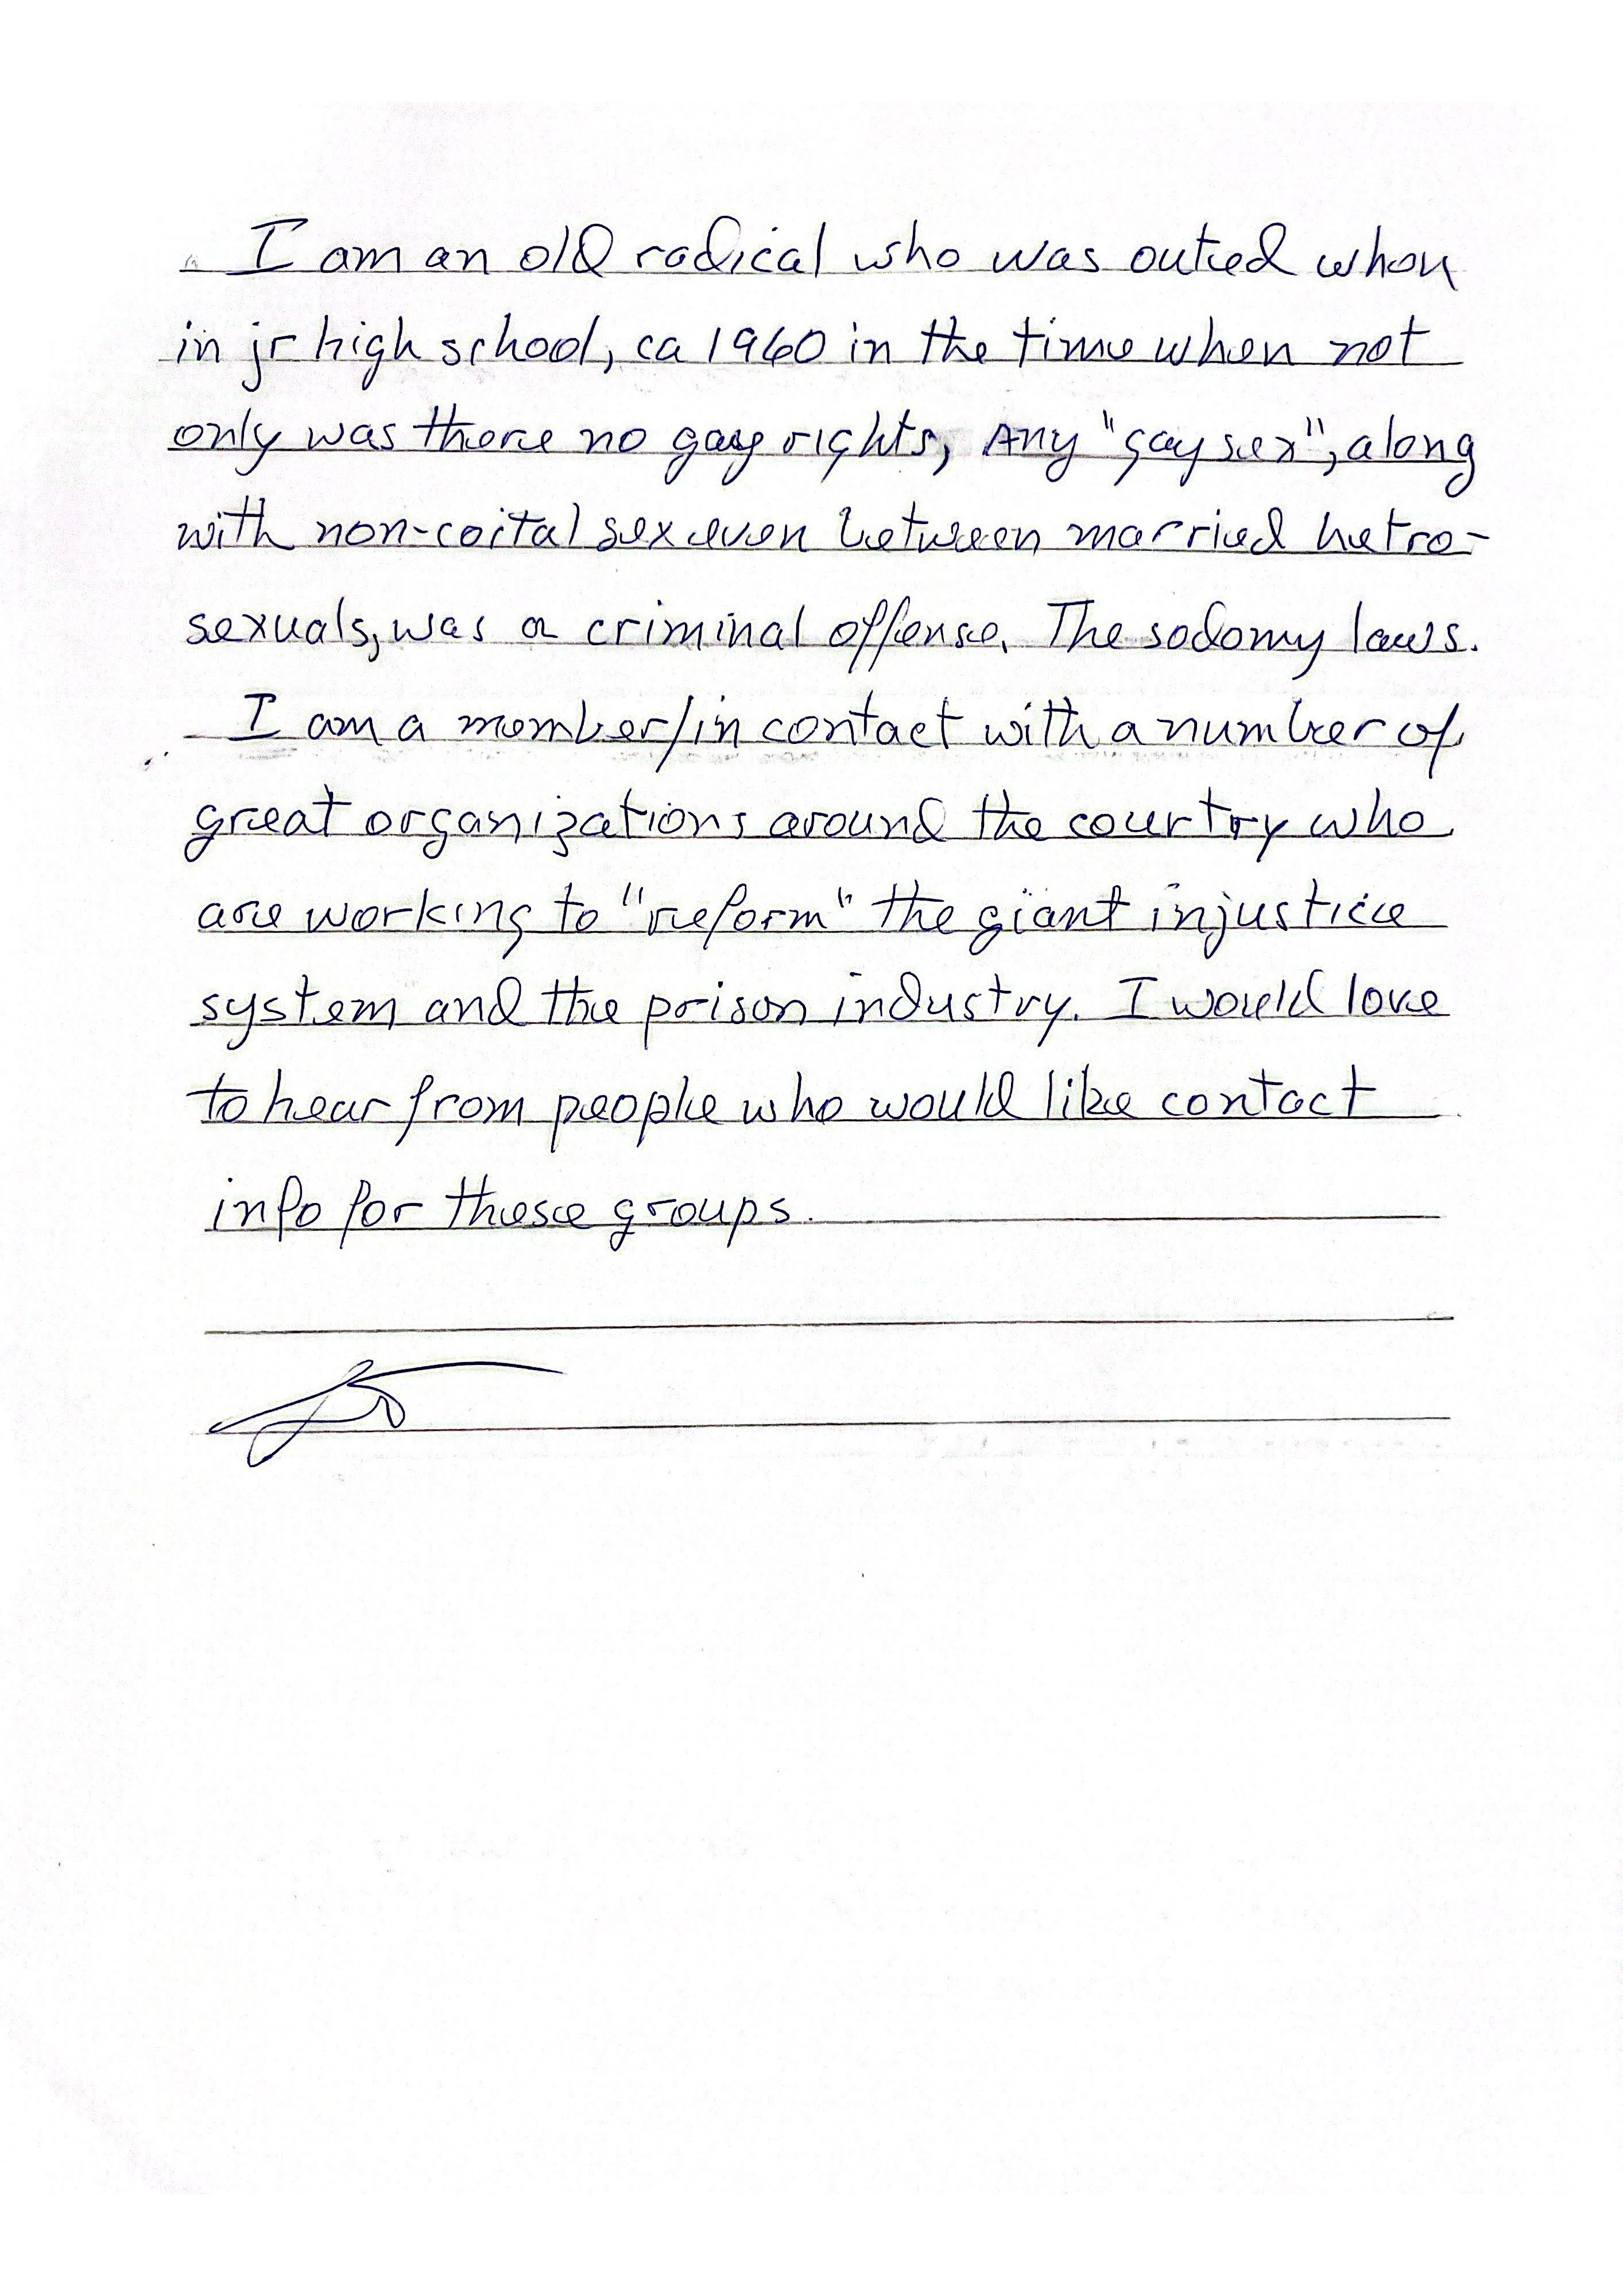 I am an old radical who was outed when
in jr high school, ca 1960 in the time when not
only was there no gay rights, Any "gay sex", along
with non-coital sex even between married hetro-
sexuals, was a criminal offense. The sodomy laws.
I am a member/in contact with a number of
great organizations around the country who
are working to "reform" the giant injustice
system and the prison industry. I would love
to hear from people who would like contact
info for these groups.